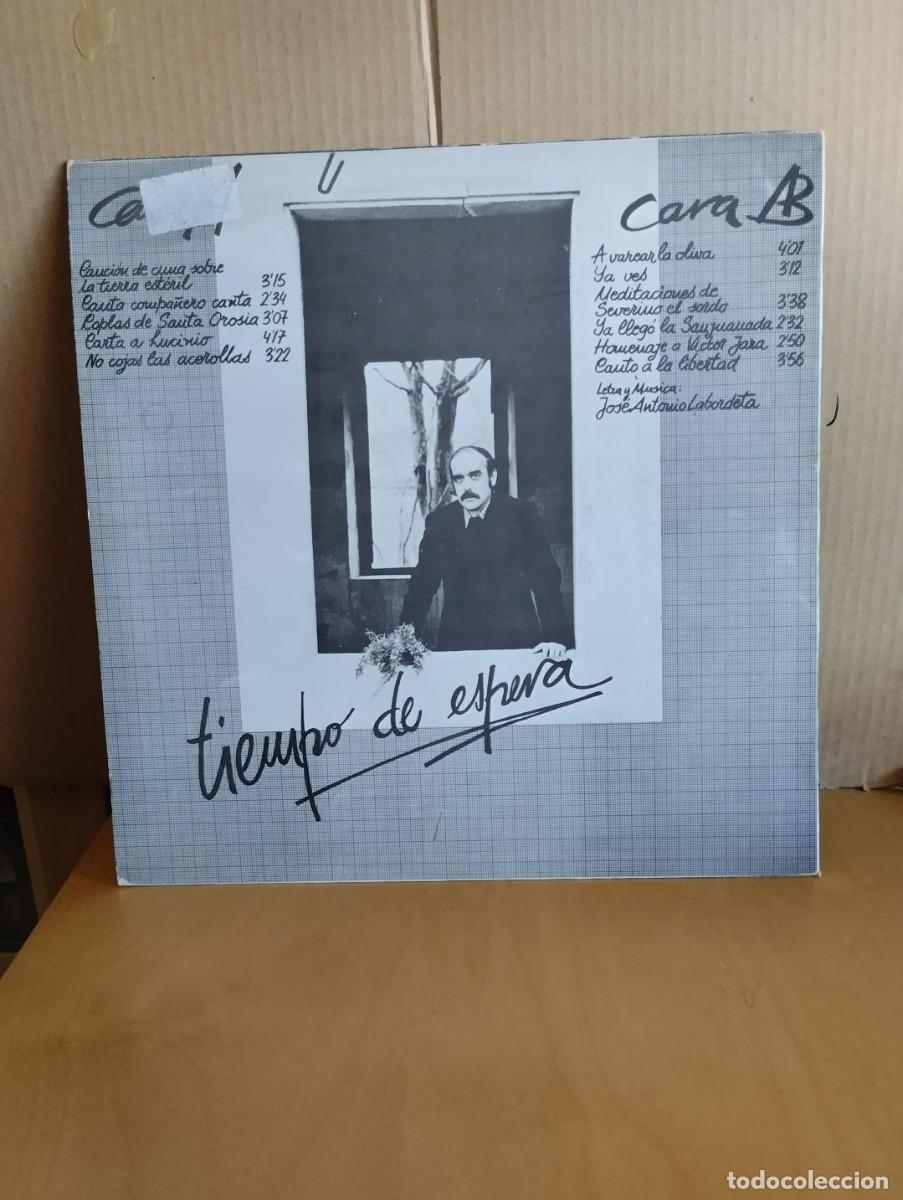 Canción de cuna sobre
la tierra estéril 3'15
Canta compañero canta 2'34
Coplas de Santa Orosia 3'07
Carta a Lucinio 4'17
No cojas las acerollas 3'22
Cara B
A varear la oliva 4'01
Ya ves 3'12
Meditaciones de
Severino el sordo 3'38
Ya llegó la Sanjuanada 2'32
Homenaje a Victor Jara 2'50
Canto a la libertad 3'56
Letra y Musica:
José Antonio Labordeta
tiempo de espera
todocoleccion